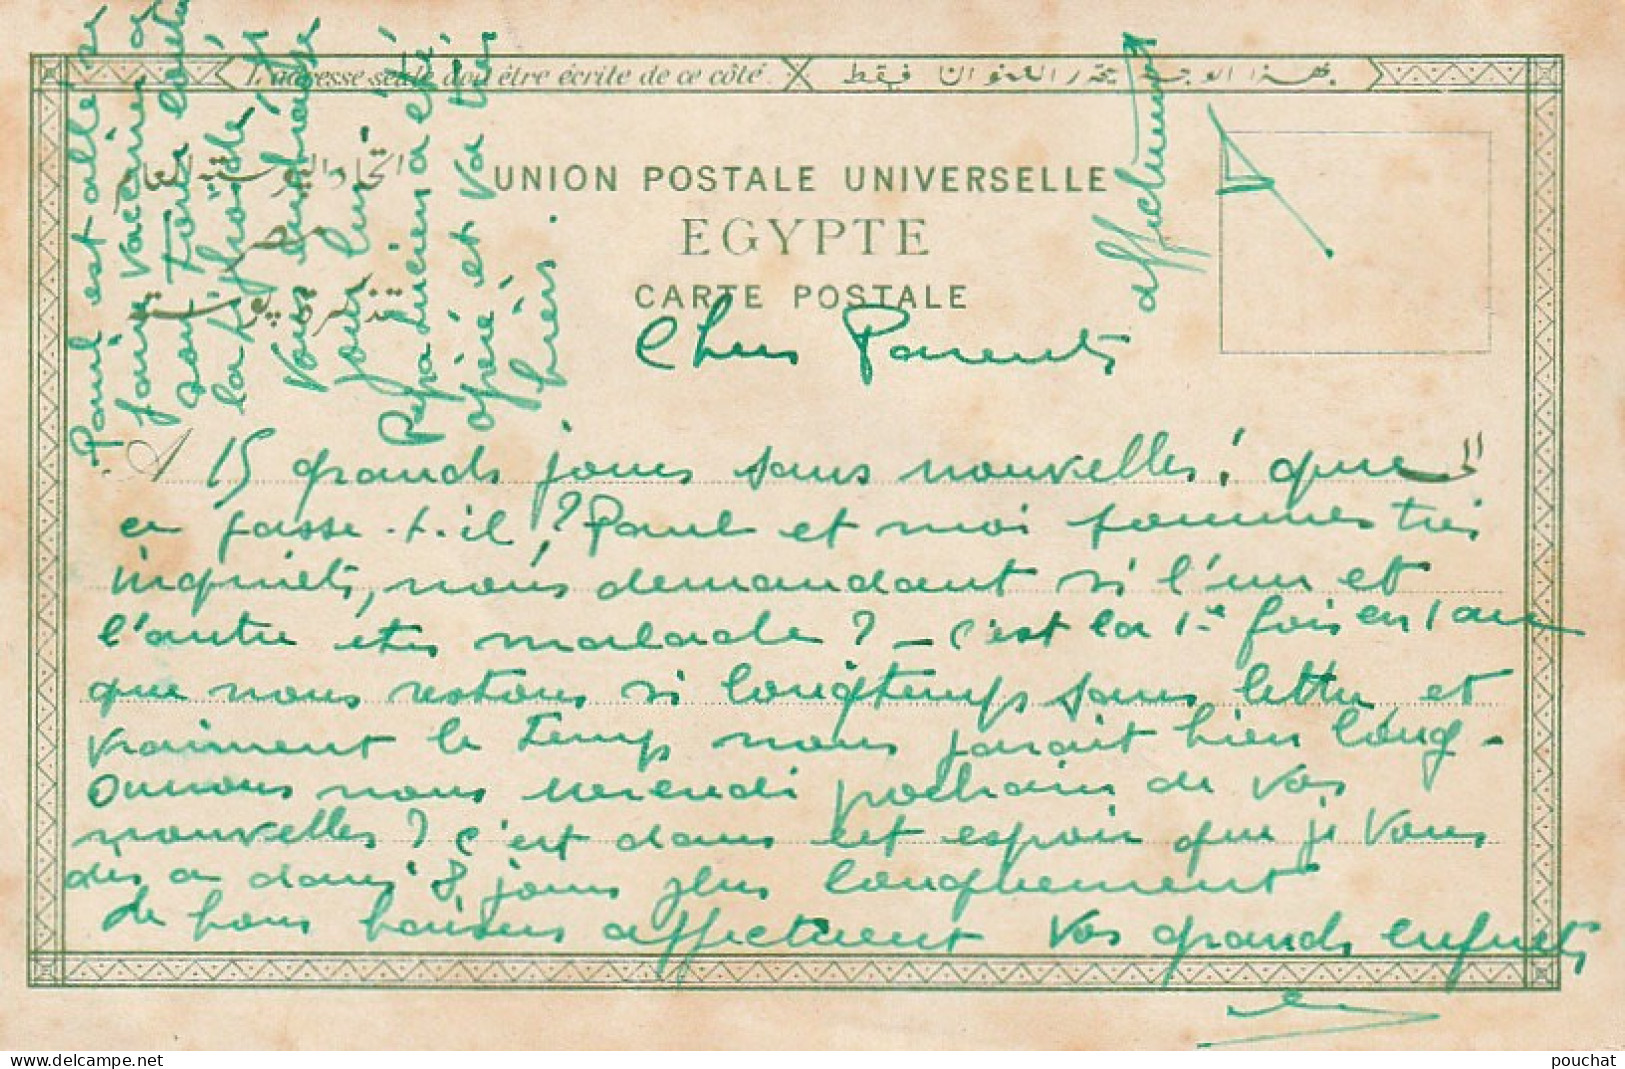 L'adresse seule doit être écrite de ce côté.
اتحاد البوسته العام
مصر
تذكرة بوستة
UNION POSTALE UNIVERSELLE
EGYPTE
CARTE POSTALE
Chers Parents
A 15 grands jours sans nouvelles! que
ce passe-t-il? Paul et moi sommes très
inquiets, nous demandant si l'un et
l'autre êtes malade? - C'est la 1re fois en 1 an
que nous restons si longtemps sans lettre et
vraiment le temps nous parait bien long -
Aurons nous vendredi prochain de vos
nouvelles? C'est dans cet espoir que je vous
dis a dans 8 jours plus longuement
de bons baisers affectueux Vos grands enfants
Paul est allé se
faire vacciner
sont
la
Vous embrasse
pour lui
Lucien a été
opéré et va très
bien.
affectueusement
pouchat